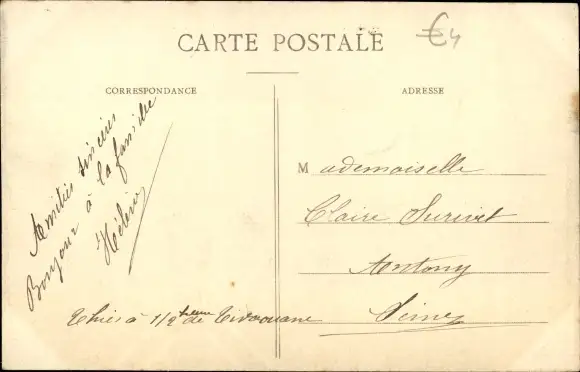 CARTE POSTALE
€4
CORRESPONDANCE
ADRESSE
Amitiés sincères
Bonjour à la famille
Hélène
Thiès à 1/2 heure de Tivaouane
Mademoiselle
Claire
Antony
Seine